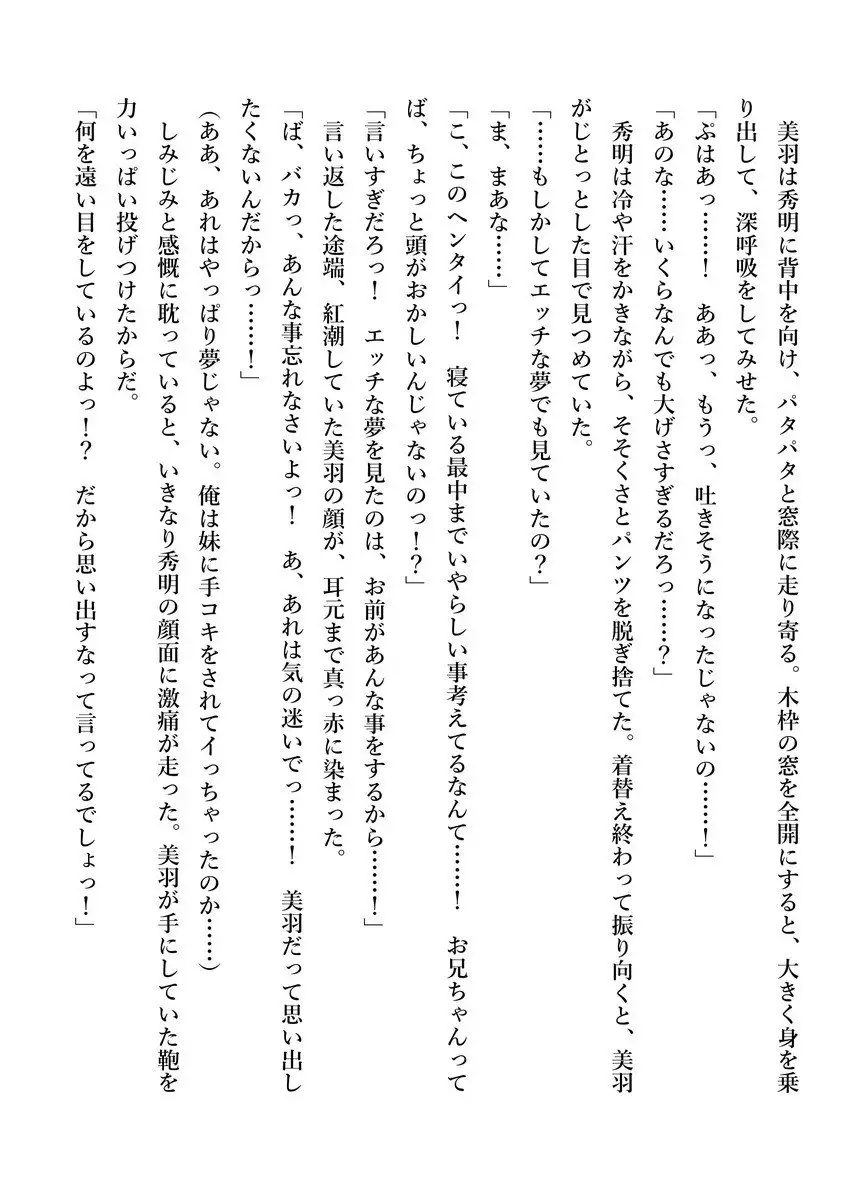 美羽は秀明に背中を向け、パタパタと窓際に走り寄る。木枠の窓を全開にすると、大きく身を乗
り出して、深呼吸をしてみせた。
「ぷはあっ……！　ああっ、もうっ、吐きそうになったじゃないの……！」
「あのな……いくらなんでも大げさすぎるだろっ……？」
秀明は冷や汗をかきながら、そそくさとパンツを脱ぎ捨てた。着替え終わって振り向くと、美羽
がじとっとした目で見つめていた。
「……もしかしてエッチな夢でも見ていたの？」
「ま、まあな……」
「こ、このヘンタイっ！　寝ている最中までいやらしい事考えてるなんて……！　お兄ちゃんって
ば、ちょっと頭がおかしいんじゃないのっ！？」
「言いすぎだろっ！　エッチな夢を見たのは、お前があんな事をするから……！」
言い返した途端、紅潮していた美羽の顔が、耳元まで真っ赤に染まった。
「ば、バカっ、あんな事忘れなさいよっ！　あ、あれは気の迷いでっ……！　美羽だって思い出し
たくないんだからっ……！」
（ああ、あれはやっぱり夢じゃない。俺は妹に手コキをされてイっちゃったのか……）
しみじみと感慨に耽っていると、いきなり秀明の顔面に激痛が走った。美羽が手にしていた鞄を
力いっぱい投げつけたからだ。
「何を遠い目をしているのよっ！？　だから思い出すなって言ってるでしょっ！」